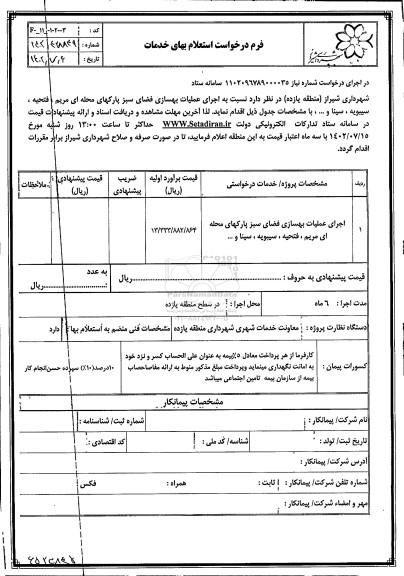 فرم درخواست استعلام بهای خدمات
کد :
شماره :
تاریخ :
در اجرای درخواست شماره نیاز ۱۱۰۲۰۹۶۷۸۹۰۰۰۰۳۵ سامانه ستاد
شهرداری شیراز (منطقه یازده) در نظر دارد نسبت به اجرای عملیات بهسازی فضای سبز پارکهای محله ای مریم ، فتحیه ،
سیبویه ، سینا و ... ، با مشخصات جدول ذیل اقدام نماید. لذا آخرین مهلت مشاهده و دریافت اسناد و ارائه پیشنهادات قیمت
در سامانه ستاد تدارکات الکترونیکی دولت WWW.Setadiran.ir حداکثر تا ساعت ۱۳:۰۰ روز شنبه مورخ
۱۴۰۲/۰۷/۱۵ با سه ماه اعتبار قیمت به این منطقه اعلام فرمایید، تا در صورت صرفه و صلاح شهرداری شیراز برابر مقررات
اقدام گردد.
ردیف
مشخصات پروژه/ خدمات درخواستی
قیمت برآورد اولیه (ریال)
ضریب پیشنهادی
قیمت پیشنهادی (ریال)
ملاحظات
۱
اجرای عملیات بهسازی فضای سبز پارکهای محله
ای مریم ، فتحیه ، سیبویه ، سینا و ...
۱۲/۳۳۳/۸۸۲/۸۶۴
قیمت پیشنهادی به حروف : ............ریال
به عدد :............ریال
مدت اجرا : ۶ ماه
محل اجرا : در سطح منطقه یازده
دستگاه نظارت پروژه : معاونت خدمات شهری شهرداری منطقه یازده
مشخصات فنی منضم به استعلام بها: دارد
کسورات پیمان :
کارفرما از هر پرداخت معادل ۵٪بیمه به عنوان علی الحساب کسر و نزد خود
به امانت نگهداری مینماید وپرداخت مبلغ مذکور منوط به ارائه مفاصاحساب
بیمه از سازمان بیمه تامین اجتماعی میباشد
۱۰درصد(۱۰٪) سپرده حسن انجام کار
مشخصات پیمانکار
نام شرکت/ پیمانکار :
شماره ثبت/ شناسنامه :
تاریخ ثبت/ تولد :
شناسه/ کد ملی :
کد اقتصادی :
آدرس شرکت/ پیمانکار :
شماره تلفن شرکت/ پیمانکار :
ثابت :
همراه :
فکس
مهر و امضاء شرکت/ پیمانکار :